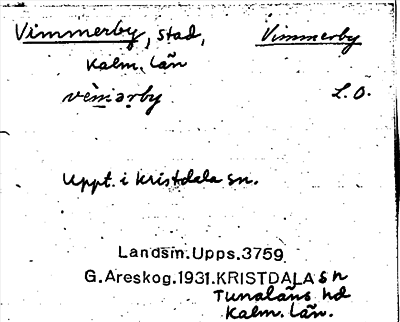 Vimmerby, stad, Vimmerby
Kalm. län
vèmərby L. O.
Uppt. i Kristdala sn.
Landsm. Upps. 3759
G. Areskog. 1931. KRISTDALA sn
Tunaläns hd
Kalm. län.